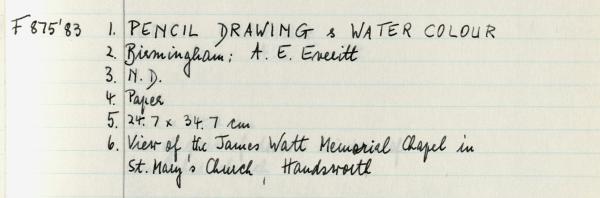 F 875'83 1. PENCIL DRAWING & WATER COLOUR
2. Birmingham: A. E. Everitt
3. N.D.
4. Paper
5. 24.7 x 34.7 cm
6. View of the James Watt Memorial Chapel in
St. Mary's Church, Handsworth